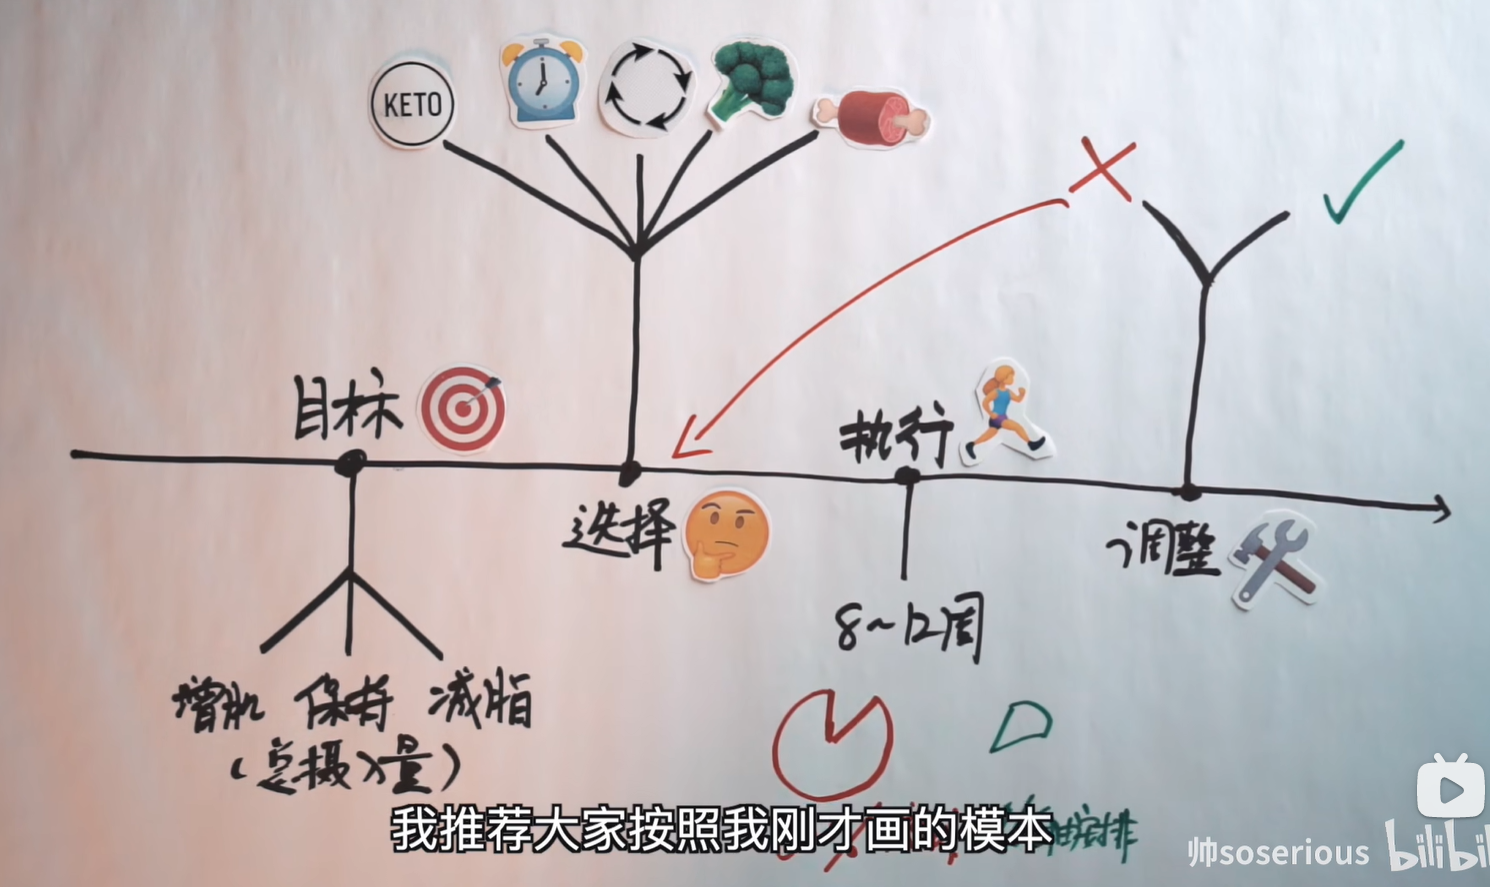 KETO
目标
执行
选择
调整
8~12周
增肌 保持 减脂
(总摄入量)
我推荐大家按照我刚才画的模本
由安排
帅soserious
bilibili